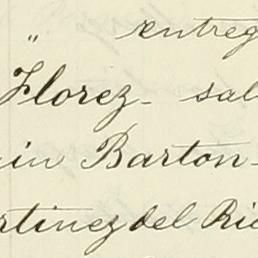 " entreg
Florez - sal
in Barton -
rtinez del Rio